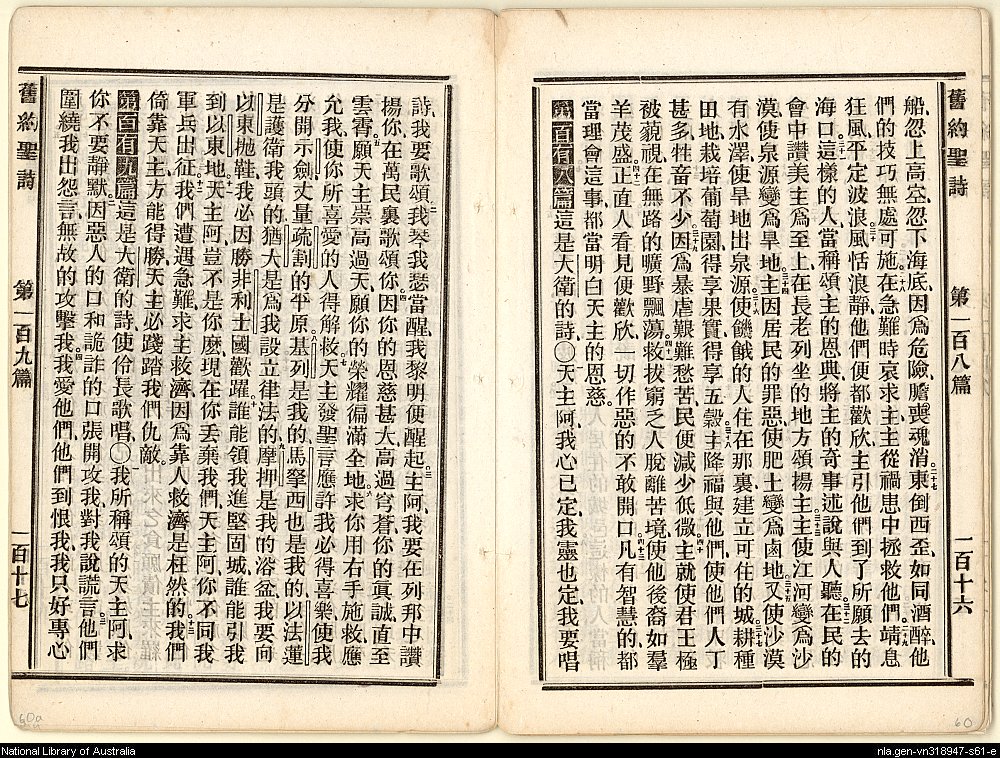 舊約聖詩 第一百八篇 一百十六
船、忽上高空、忽下海底、因爲危險、膽喪魂消、二十七東倒西歪、如同酒醉、他
們的技巧無處可施、二十八在急難時哀求主、主從禍患中拯救他們、二十九靖息
狂風、平定波浪、三十風恬浪靜、他們便都歡欣、主引他們到了所願去的
海口、三十一這樣的人、當稱頌主的恩典、將主的奇事述說與人聽、三十二在民的
會中讚美主、爲至上、在長老列坐的地方頌揚主、三十三主使江河變爲沙
漠、使泉源變爲旱地、三十四主因居民的罪惡、使肥土變爲鹵地、三十五又使沙漠
有水澤、使旱地出泉源、三十六使饑餓的人住在那裏、建立可住的城、三十七耕種
田地、栽培葡萄園、得享果實、得享五穀、三十八主降福與他們、使他們人丁
甚多、牲畜不少、三十九因爲暴虐艱難愁苦、民便減少低微、四十主就使君王極
被藐視、在無路的曠野飄蕩、四十一救拔窮乏人脫離苦境、使他後裔如羣
羊茂盛、四十二正直人看見便歡欣、一切作惡的不敢開口、四十三凡有智慧的、都
當理會這事、都當明白天主的恩慈。
第一百有八篇 這是大衛的詩〇天主阿、我心已定、我靈也定、我要唱
舊約聖詩 第一百九篇 一百十七
詩、我要歌頌、二我琴我瑟當醒、我黎明便醒起、三主阿、我要在列邦中讚
揚你、在萬民裏歌頌你、四因你的恩慈甚大、高過穹蒼、你的眞誠直至
雲霄、五願天主崇高過天、願你的榮耀徧滿全地、六求你用右手施救、應
允我、使你所喜愛的人得解救、七天主發聖言應許我、我必得喜樂、使我
分開示劍、丈量疏割的平原、八基列是我的、馬拏西也是我的、以法蓮
是護衛我頭的、猶大是爲我設立律法的、九摩押是我的浴盆、我要向
以東拋鞋、我必因勝非利士國歡躍、十誰能領我進堅固城、誰能引我
到以東地、十一天主阿、豈不是你麽、現在你丟棄我們、天主阿、你不同我
軍兵出征、十二我們遭遇急難、求主救濟、因爲靠人救濟是枉然的、十三我們
倚靠天主、方能得勝、天主必踐踏我們仇敵。
第一百有九篇 這是大衛的詩、使伶長歌唱〇我所稱頌的天主阿、求
你不要靜默、二因惡人的口、和詭詐的口、張開攻我、對我說謊言、三他們
圍繞我、出怨言、無故的攻擊我、四我愛他們、他們到恨我、我只好專心
60a
60
National Library of Australia
nla.gen-vn318947-s61-e